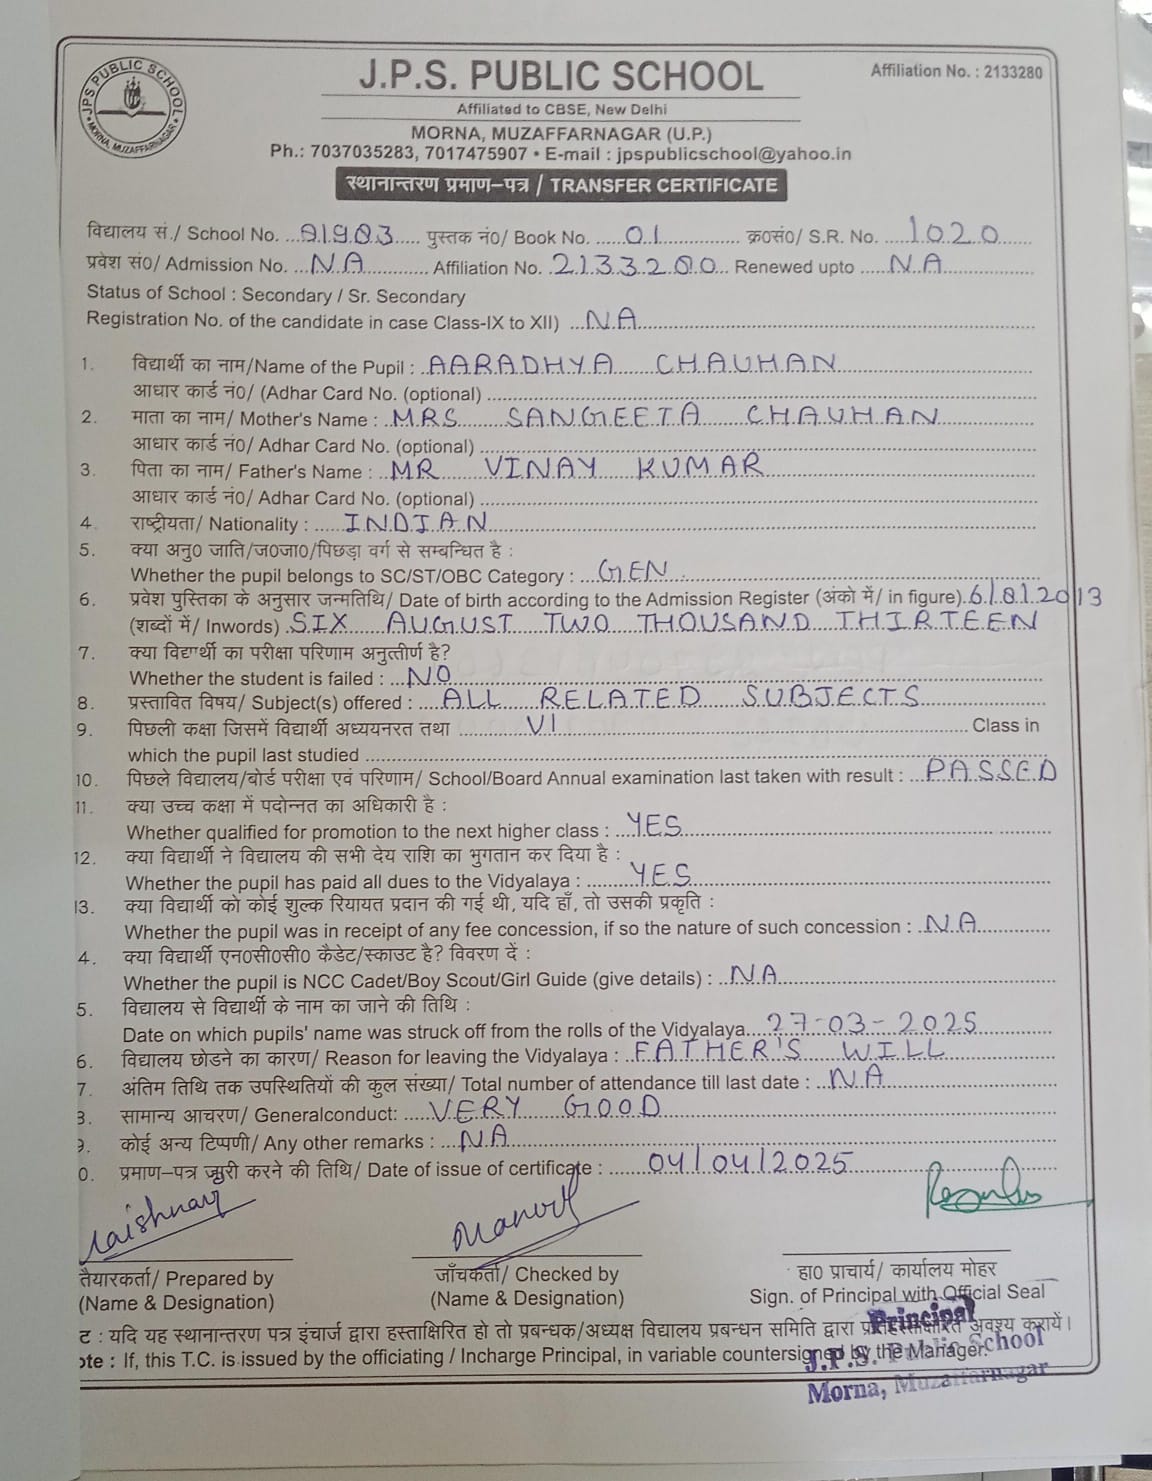 JPS PUBLIC SCHOOL
MORNA, MUZAFFARNAGAR
J.P.S. PUBLIC SCHOOL
Affiliation No. : 2133280
Affiliated to CBSE, New Delhi
MORNA, MUZAFFARNAGAR (U.P.)
Ph.: 7037035283, 7017475907 • E-mail : jpspublicschool@yahoo.in
स्थानान्तरण प्रमाण-पत्र / TRANSFER CERTIFICATE
विद्यालय सं./ School No. ...81983..... पुस्तक नं0/ Book No. ......01.............. क्र0सं0/ S.R. No. .....1020......
प्रवेश सं0/ Admission No. ...NA........... Affiliation No. .2133280... Renewed upto .....NA...............
Status of School : Secondary / Sr. Secondary
Registration No. of the candidate in case Class-IX to XII) ...NA...............
1. विद्यार्थी का नाम/Name of the Pupil : ..AARADHYA CHAUHAN...............
आधार कार्ड नं0/ (Adhar Card No. (optional) ...............
2. माता का नाम/ Mother's Name : ..MRS SANGEETA CHAUHAN...............
आधार कार्ड नं0/ Adhar Card No. (optional) ...............
3. पिता का नाम/ Father's Name : ..MR VINAY KUMAR...............
आधार कार्ड नं0/ Adhar Card No. (optional) ...............
4. राष्ट्रीयता/ Nationality : .....INDIAN...............
5. क्या अनु0 जाति/ज0जा0/पिछड़ा वर्ग से सम्बन्धित है :
Whether the pupil belongs to SC/ST/OBC Category : ...GEN...............
6. प्रवेश पुस्तिका के अनुसार जन्मतिथि/ Date of birth according to the Admission Register (अंको में/ in figure).6/8/2013
(शब्दों में/ Inwords) .SIX AUGUST TWO THOUSAND THIRTEEN
7. क्या विद्यार्थी का परीक्षा परिणाम अनुत्तीर्ण है?
Whether the student is failed : ...NO...............
8. प्रस्तावित विषय/ Subject(s) offered : ....ALL RELATED SUBJECTS...............
9. पिछली कक्षा जिसमें विद्यार्थी अध्ययनरत तथा ............VI............... Class in
which the pupil last studied ...............
10. पिछले विद्यालय/बोर्ड परीक्षा एवं परिणाम/ School/Board Annual examination last taken with result : ...PASSED
11. क्या उच्च कक्षा में पदोन्नत का अधिकारी है :
Whether qualified for promotion to the next higher class : ....YES...............
12. क्या विद्यार्थी ने विद्यालय की सभी देय राशि का भुगतान कर दिया है :
Whether the pupil has paid all dues to the Vidyalaya : .........YES...............
13. क्या विद्यार्थी को कोई शुल्क रियायत प्रदान की गई थी, यदि हाँ, तो उसकी प्रकृति :
Whether the pupil was in receipt of any fee concession, if so the nature of such concession : ..NA...............
4. क्या विद्यार्थी एन0सी0सी0 कैडेट/स्काउट है? विवरण दें :
Whether the pupil is NCC Cadet/Boy Scout/Girl Guide (give details) : ..NA...............
5. विद्यालय से विद्यार्थी के नाम का जाने की तिथि :
Date on which pupils' name was struck off from the rolls of the Vidyalaya....27-03-2025...............
6. विद्यालय छोडने का कारण/ Reason for leaving the Vidyalaya : ..FATHER'S WILL...............
7. अंतिम तिथि तक उपस्थितियों की कुल संख्या/ Total number of attendance till last date : ..NA...............
8. सामान्य आचरण/ Generalconduct: .....VERY GOOD...............
9. कोई अन्य टिप्पणी/ Any other remarks : ...NA...............
0. प्रमाण-पत्र जारी करने की तिथि/ Date of issue of certificate : ......04/04/2025...............
Manoj
तैयारकर्ता/ Prepared by
(Name & Designation)
जाँचकर्ता/ Checked by
(Name & Designation)
हा0 प्राचार्य/ कार्यालय मोहर
Sign. of Principal with Official Seal
ट : यदि यह स्थानान्तरण पत्र इंचार्ज द्वारा हस्ताक्षिरित हो तो प्रबन्धक/अध्यक्ष विद्यालय प्रबन्धन समिति द्वारा प्रतिहस्ताक्षरित अवश्य करायें।
ote : If, this T.C. is issued by the officiating / Incharge Principal, in variable countersigned by the Manager.
Principal
J.P.S. Public School
Morna, Muzaffarnagar